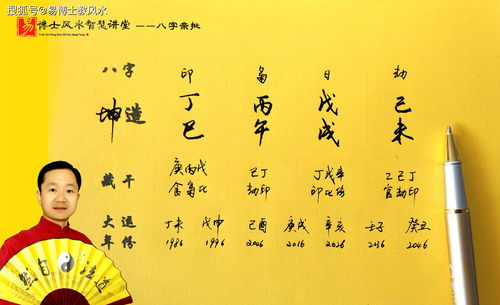 搜狐号@易博士教风水
易 博士风水智慧讲堂 ——八字亲批
八字 印 枭 日 劫
坤造 丁巳 丙午 戊戌 己未
藏干 庚丙戊 己丁 丁戊辛 乙己丁
食枭比 劫印 印比伤 官劫印
大运 丁未 戊申 己酉 庚戌 辛亥 壬子 癸丑
年份 1986 1996 2006 2016 2026 2036 2046
然自法道